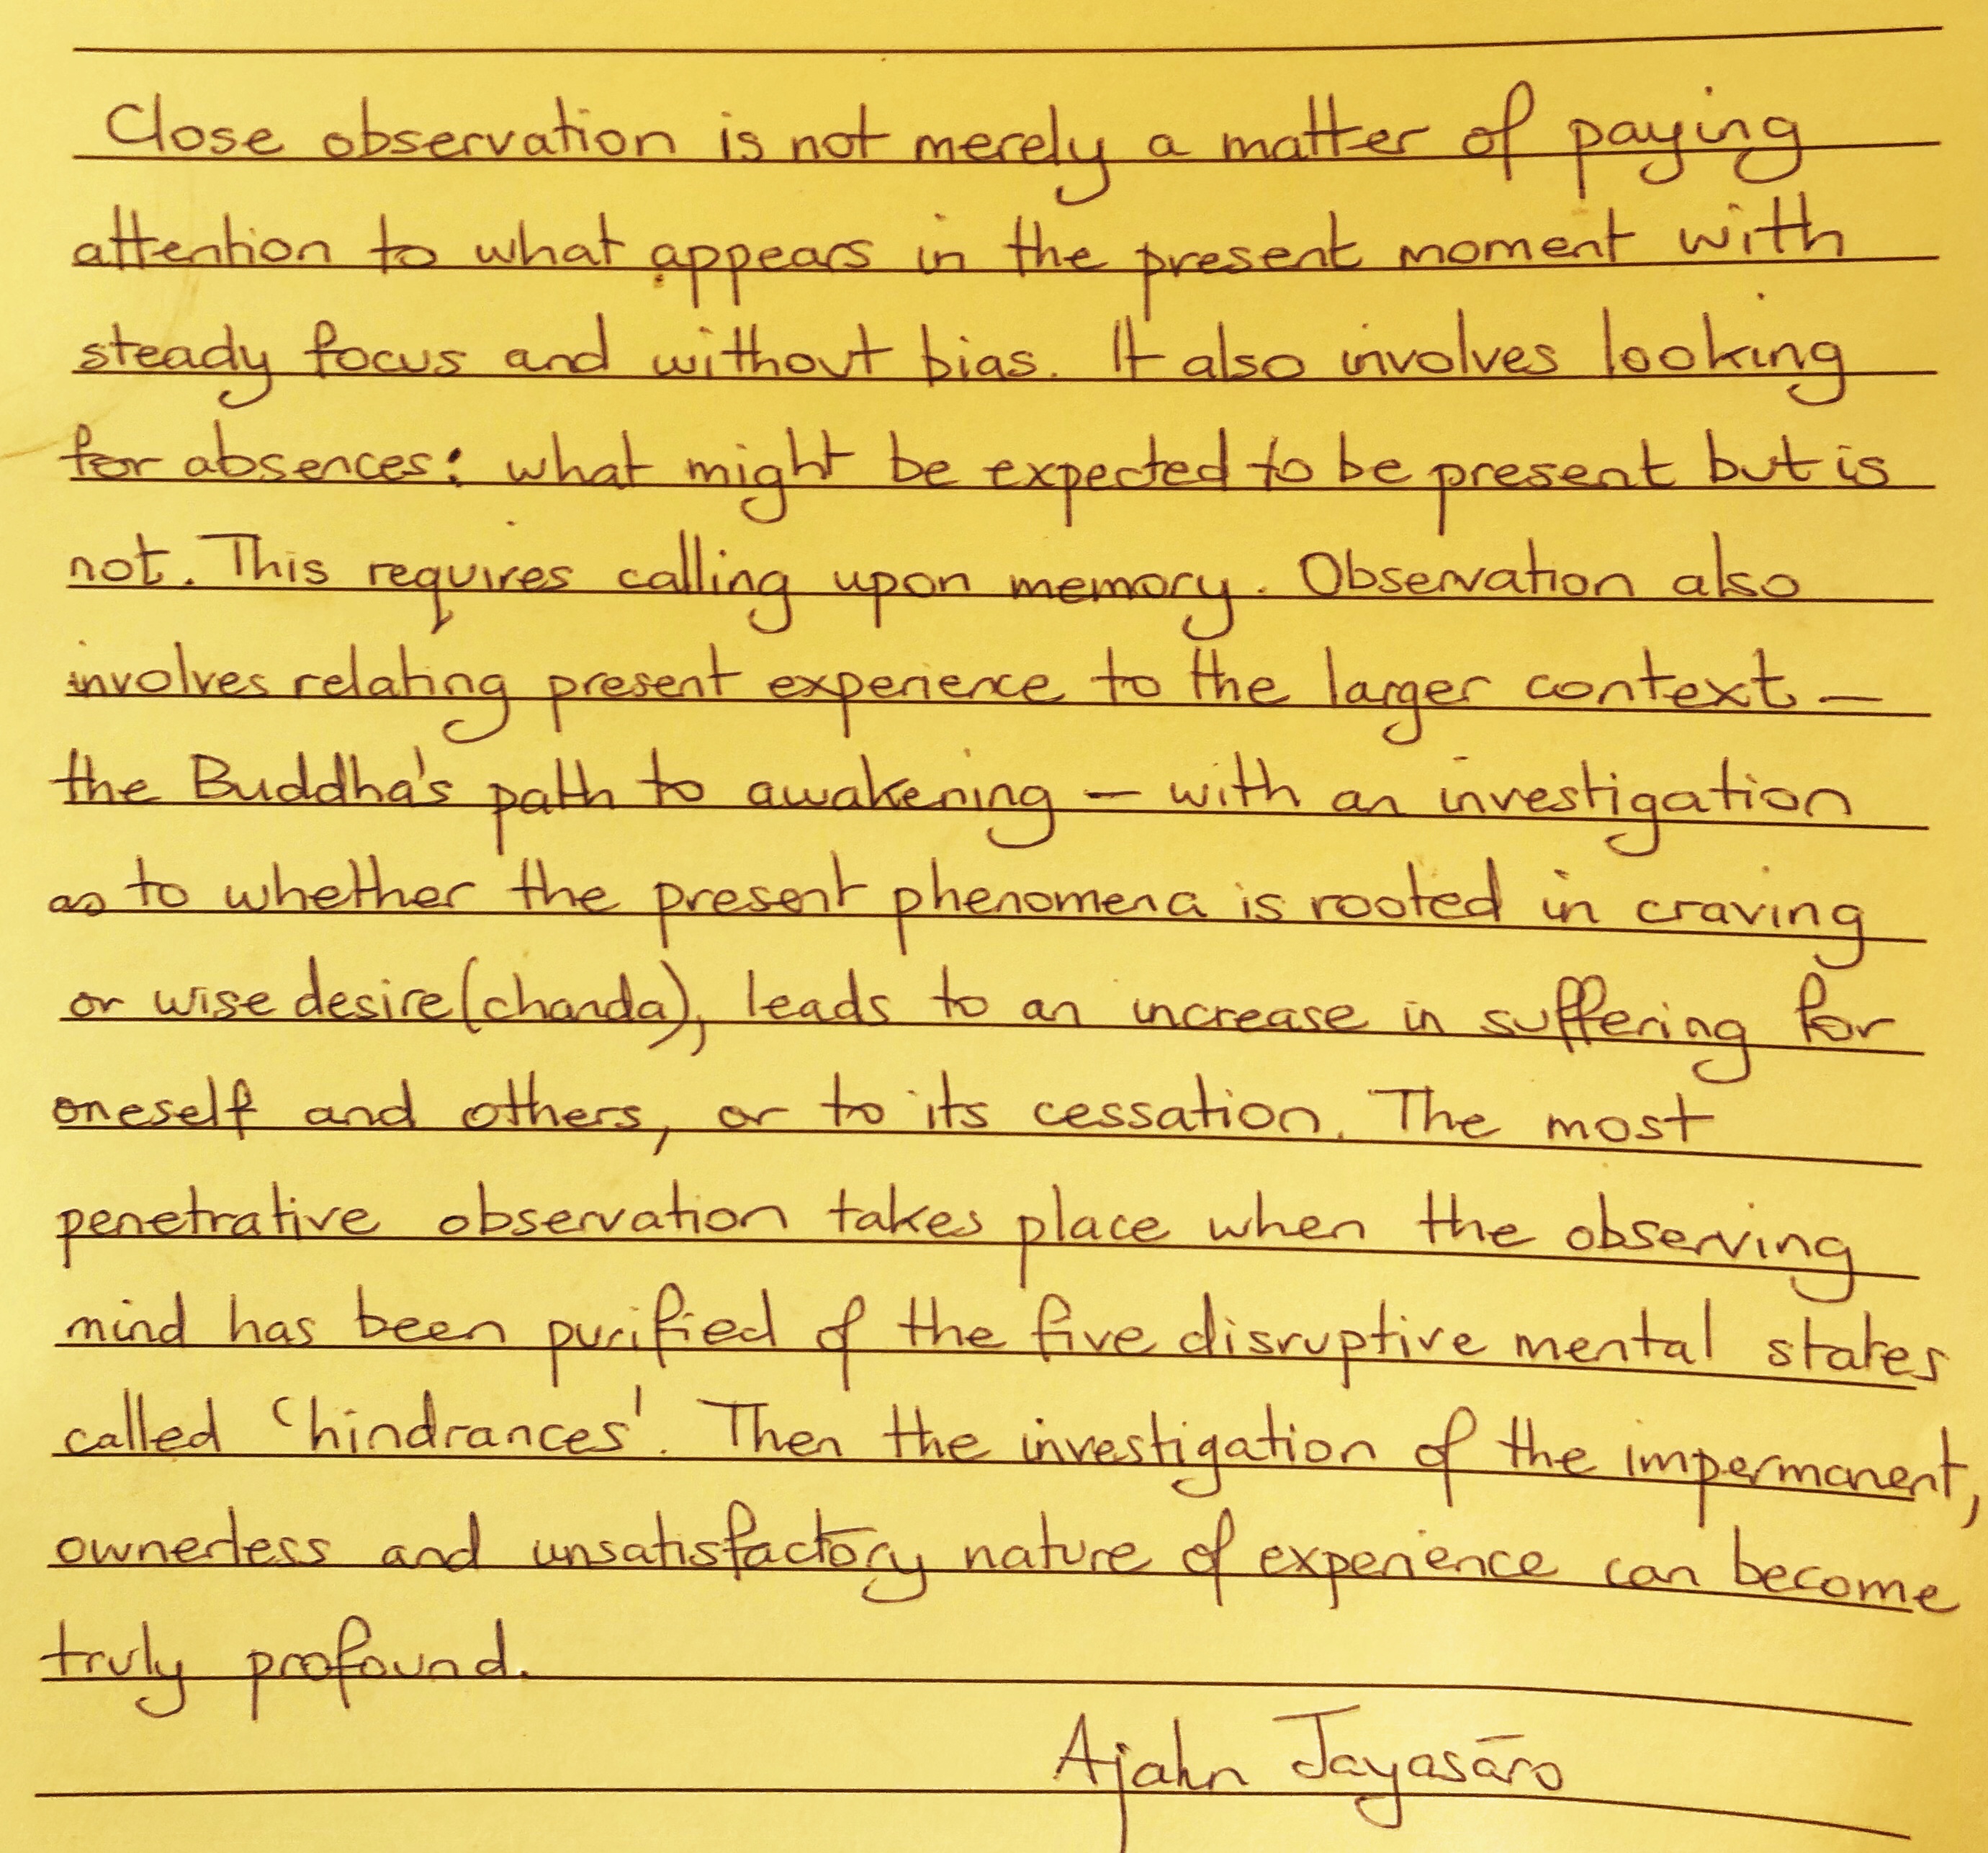 Close observation is not merely a matter of paying
attention to what appears in the present moment with
steady focus and without bias. It also involves looking
for absences: what might be expected to be present but is
not. This requires calling upon memory. Observation also
involves relating present experience to the larger context —
the Buddha's path to awakening — with an investigation
as to whether the present phenomena is rooted in craving
or wise desire (chanda), leads to an increase in suffering for
oneself and others, or to its cessation. The most
penetrative observation takes place when the observing
mind has been purified of the five disruptive mental states
called 'hindrances'. Then the investigation of the impermanent,
ownerless and unsatisfactory nature of experience can become
truly profound.
Ajahn Jayasāro